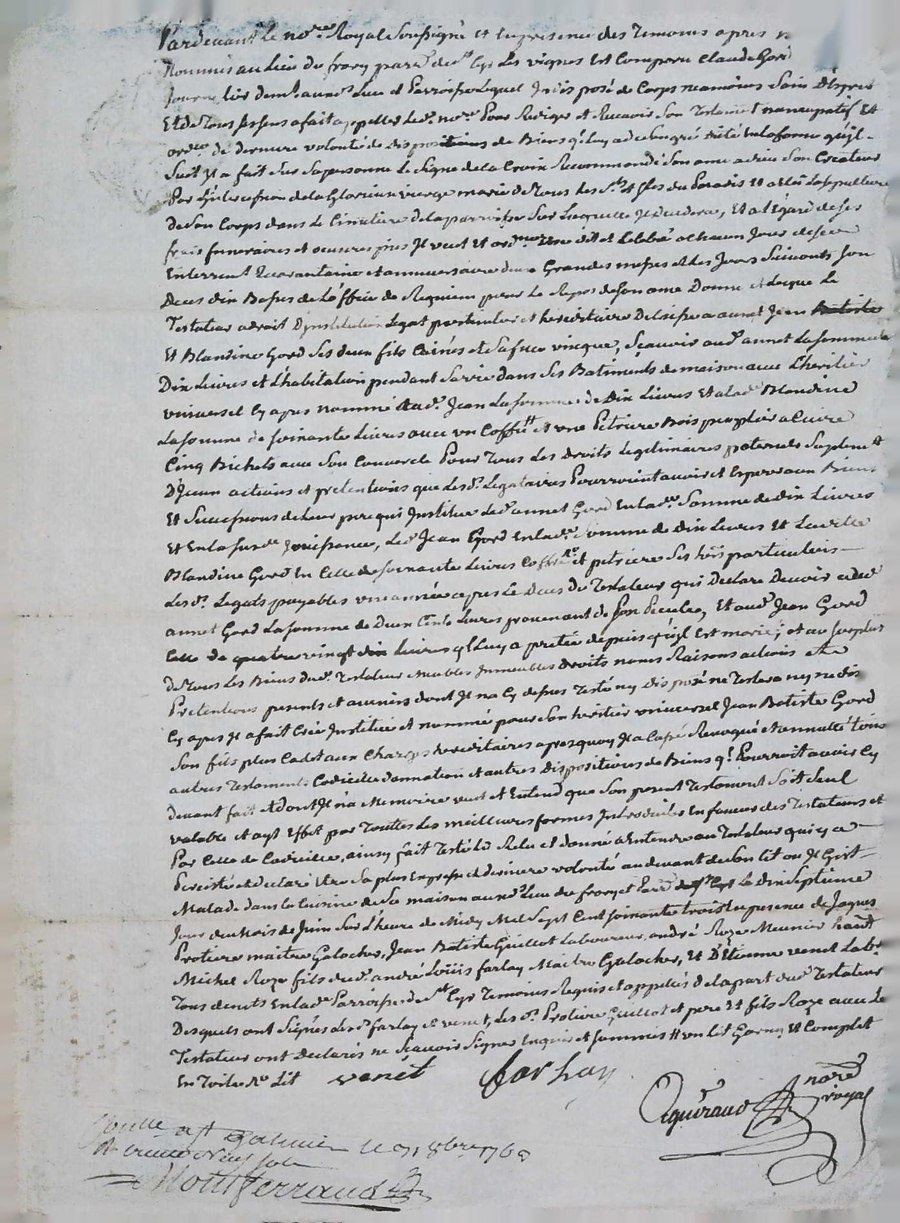 Pardevant le no.re Royal Soussigné et En presence des Temoins apres
Nommés au lieu du frary parr.e de St Cyr Les vignes Est Comparu Claude Gord
Journalier dem.t aud. Lieu et Parroisse Lequel Indisposé de Corps neamoins Sain D'Esprit
Et de Tous ses sens a fait appeller Led. no.re Pour Rediger et Recevoir Son Testament nuncupatif Et
ord.ce de derniere volonté de dispositions de Biens q'il luy a de Son gré dicté En la forme qu'il
Suit Il a fait Sur Sa personne Le Signe de la Croix Recommandé Son ame a dieu Son Createur
Par L'intercession de la Glorieuse vierge marie de Tous les Sts et Stes du Paradis et a Elû La Sepulture
de Son Corps dans Le Cimetiere de la parroisse Sur Laquelle Il decedera, Et a l'Egard de ses
frais funeraires et oeuvres pies Il veut Et ord.ne Etre dit et Celebré a chacun Jour de son
Enterrem.t Quarantaine et anniversaire deux Grandes messes Et les Jours Suivants Son
Deces dix Basses de L'office de Requiem pour Le Repos de Son ame Donne et Legue Le
Testateur a droit D'institution Legat particulier et hereditaire Delaisse a annet Jean Batiste
Et Blandine Gord Ses deux fils Cainés et Sa fille, Scavoir aud. annet La Somme de
Dix Livres et L'habitation pendant Sa vie dans Ses Batiments de maison avec L'heritier
universel Cy apres nommé Aud. Jean La Somme de Dix Livres Et a lad. Blandine
La Somme de Soixante Livres avec un Coffre et une Petriere Bois peuplier a Cuire
Cinq Bichets avec Son Couvercle Pour Tous Les Droits Legitimaires paternels Suplement
D'Iceux actions et pretentions que Les d. Legataires Pourroient avoir et Esperer aux Biens
Et Successions de Leur pere qui Institue Led. annet Gord En lad. Somme de dix Livres
Et En la Sus d. Jouissance, Led. Jean Gord En lad. Somme de dix Livres Et Lad.
Blandine Gord En Celle de Soixante Livres Coffre et petriere Ses heirs particuliers
Les d. Legats payables une année apres Le Deces du Testateur qui Declare Devoir aud.
annet Gord La Somme de Deux Cents Livres provenant de Son Pecule, Et aud. Jean Gord
Celle de quatre vingt dix Livres q'il Luy a pretée depuis qu'il Est marié; et au Surplus
de Tous Les Biens dud. Testateur Meubles Immeubles Droits noms Raisons actions Et
Pretentions presents et avenirs dont Il na Cy dessus Testé ny disposé ne Testera ny
Cy apres Il a fait Crée Institué et nommé pour Son heritier universel Jean Batiste Gord
Son fils plus Cadet aux Charges hereditaires apres quoy Il a Cassé Revoqué et annullé tous
autres Testaments Codicille donnation et autres dispositions de Biens q'il Pourroit avoir Cy
devant fait et dont Il n'a Memoire veut et Entend que Son present Testament Soit Seul
valable et ayt Effet par Toutes Les meilleures formes Introduites En faveur des Testateurs et
Par Celle de Codicille, ainsy fait Testé Lû Relu et donné a Entendre au Testateur qui y a
Persisté et declaré Etre Sa plus Expresse et derniere volonté au devant de Son Lit ou Il Gist
Malade dans La Cuisine de Sa maison aud. Lieu du frary et Parr.e de St Cyr Le dix Septieme
Jour du Mois de Juin Sur L'heure de Midy Mil Sept Cent Soixante trois En presence de Jaques
Protiere maitre Galocher, Jean Batiste Guillot Laboureur, andré Roze Meunier
Michel Roze fils dud. andré Loüis farlay Maitre Galocher, Et D'Etienne venet Lab.r
Tous dem.ts En lad. Parroisse de St Cyr Temoins Requis et appellés de la part dud. Testateur
Desquels ont Signés Les d. farlay et venet, Les d. Protiere Guillot et pere Et fils Roze avec Le
Testateur ont declarés ne Scavoir Signer Enquis et Sommés # un Lit Garny Et Complet
En Toile
venet farlay
Aguiraud no.re royal
a St Galmier le 8bre 1763
Montferrand